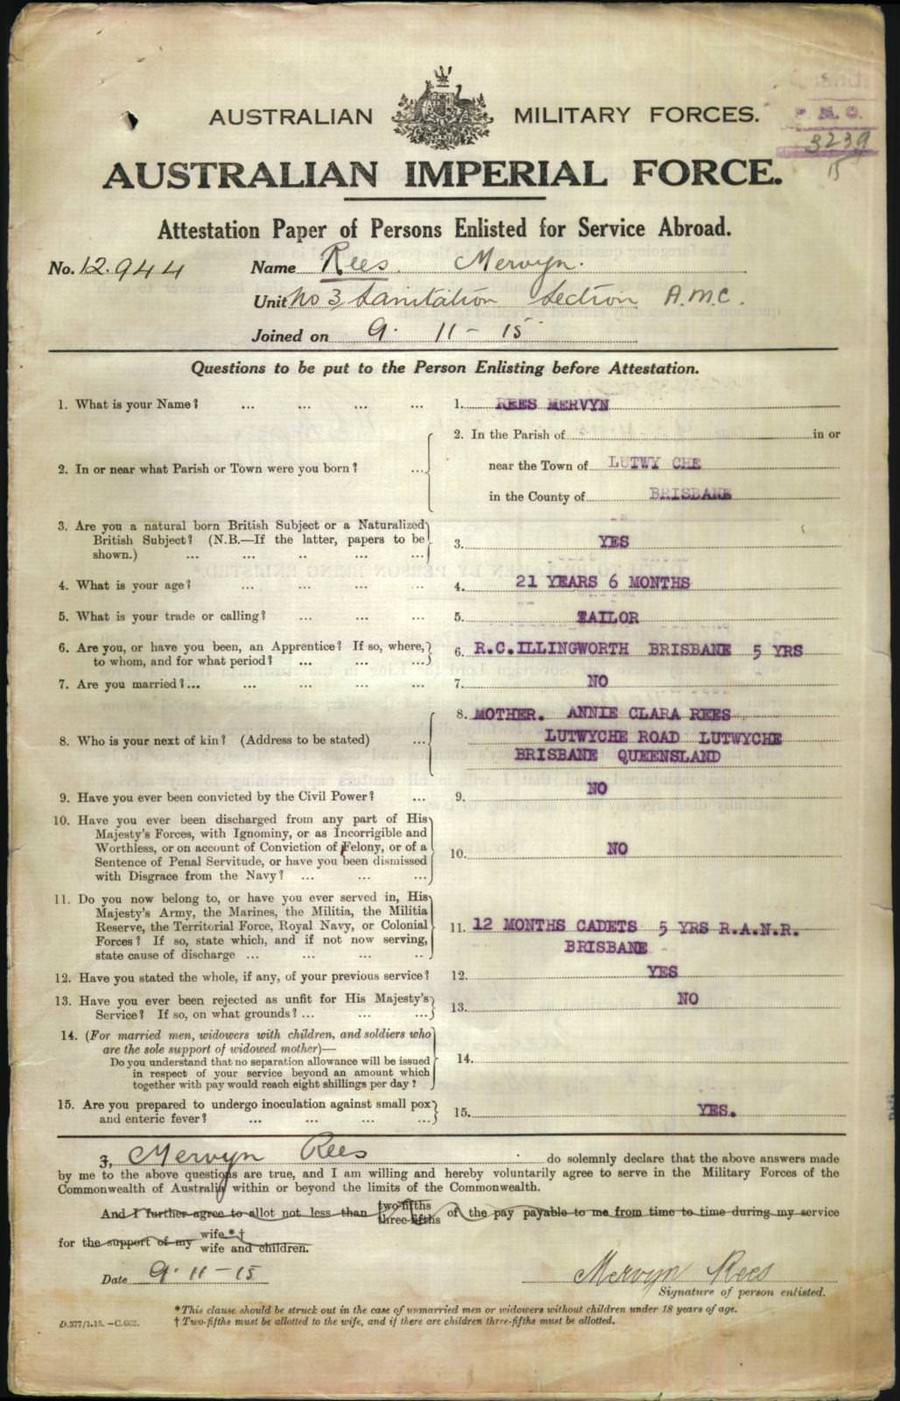 AUSTRALIAN MILITARY FORCES.
M.C.
3239
15
AUSTRALIAN IMPERIAL FORCE.
Attestation Paper of Persons Enlisted for Service Abroad.
No. 12.944 Name Rees. Mervyn.
Unit No 3 Sanitation Section A.M.C.
Joined on 9. 11 - 15
Questions to be put to the Person Enlisting before Attestation.
1. What is your Name? ... ... ... ... 1. REES MERVYN
2. In or near what Parish or Town were you born? ... 2. In the Parish of in or
near the Town of LUTWY CHE
in the County of BRISBANE
3. Are you a natural born British Subject or a Naturalized
British Subject? (N.B.—If the latter, papers to be
shown.) ... ... .. ... ... 3. YES
4. What is your age? ... ... ... ... 4. 21 YEARS 6 MONTHS
5. What is your trade or calling? ... ... ... 5. TAILOR
6. Are you, or have you been, an Apprentice? If so, where,
to whom, and for what period? ... ... ... 6. R.C.ILLINGWORTH BRISBANE 5 YRS
7. Are you married?... ... ... ... ... 7. NO
8. Who is your next of kin? (Address to be stated) ... 8. MOTHER. ANNIE CLARA REES
LUTWYCHE ROAD LUTWYCHE
BRISBANE QUEENSLAND
9. Have you ever been convicted by the Civil Power? ... 9. NO
10. Have you ever been discharged from any part of His
Majesty's Forces, with Ignominy, or as Incorrigible and
Worthless, or on account of Conviction of Felony, or of a
Sentence of Penal Servitude, or have you been dismissed
with Disgrace from the Navy? ... ... ... 10. NO
11. Do you now belong to, or have you ever served in, His
Majesty's Army, the Marines, the Militia, the Militia
Reserve, the Territorial Force, Royal Navy, or Colonial
Forces? If so, state which, and if not now serving,
state cause of discharge ... ... ... .. 11. 12 MONTHS CADETS 5 YRS R.A.N.R.
BRISBANE
12. Have you stated the whole, if any, of your previous service? 12. YES
13. Have you ever been rejected as unfit for His Majesty's
Service? If so, on what grounds? ... ... ... 13. NO
14. (For married men, widowers with children, and soldiers who
are the sole support of widowed mother)—
Do you understand that no separation allowance will be issued
in respect of your service beyond an amount which
together with pay would reach eight shillings per day? 14.
15. Are you prepared to undergo inoculation against small pox
and enteric fever? ... ... ... ... 15. YES.
I, Mervyn Rees do solemnly declare that the above answers made
by me to the above questions are true, and I am willing and hereby voluntarily agree to serve in the Military Forces of the
Commonwealth of Australia within or beyond the limits of the Commonwealth.
And I further agree to allot not less than two-fifths three-fifths of the pay payable to me from time to time during my service
for the support of my wife*† wife and children.
Date 9.11-15 Mervyn Rees
Signature of person enlisted.
*This clause should be struck out in the case of unmarried men or widowers without children under 18 years of age.
† Two-fifths must be allotted to the wife, and if there are children three-fifths must be allotted.